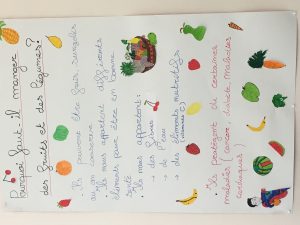 Pourquoi faut-il manger
des fruits et des légumes?
• Ils peuvent être frais, surgelés
ou en conserve
• Ils nous apportent différents
éléments pour être en bonne
santé
• Ils nous apportent:
→ des fibres
→ de l'eau
→ des éléments nutritifs
• Ils protègent de certaines
maladies (cancer, diabète, maladies
cardiaques)